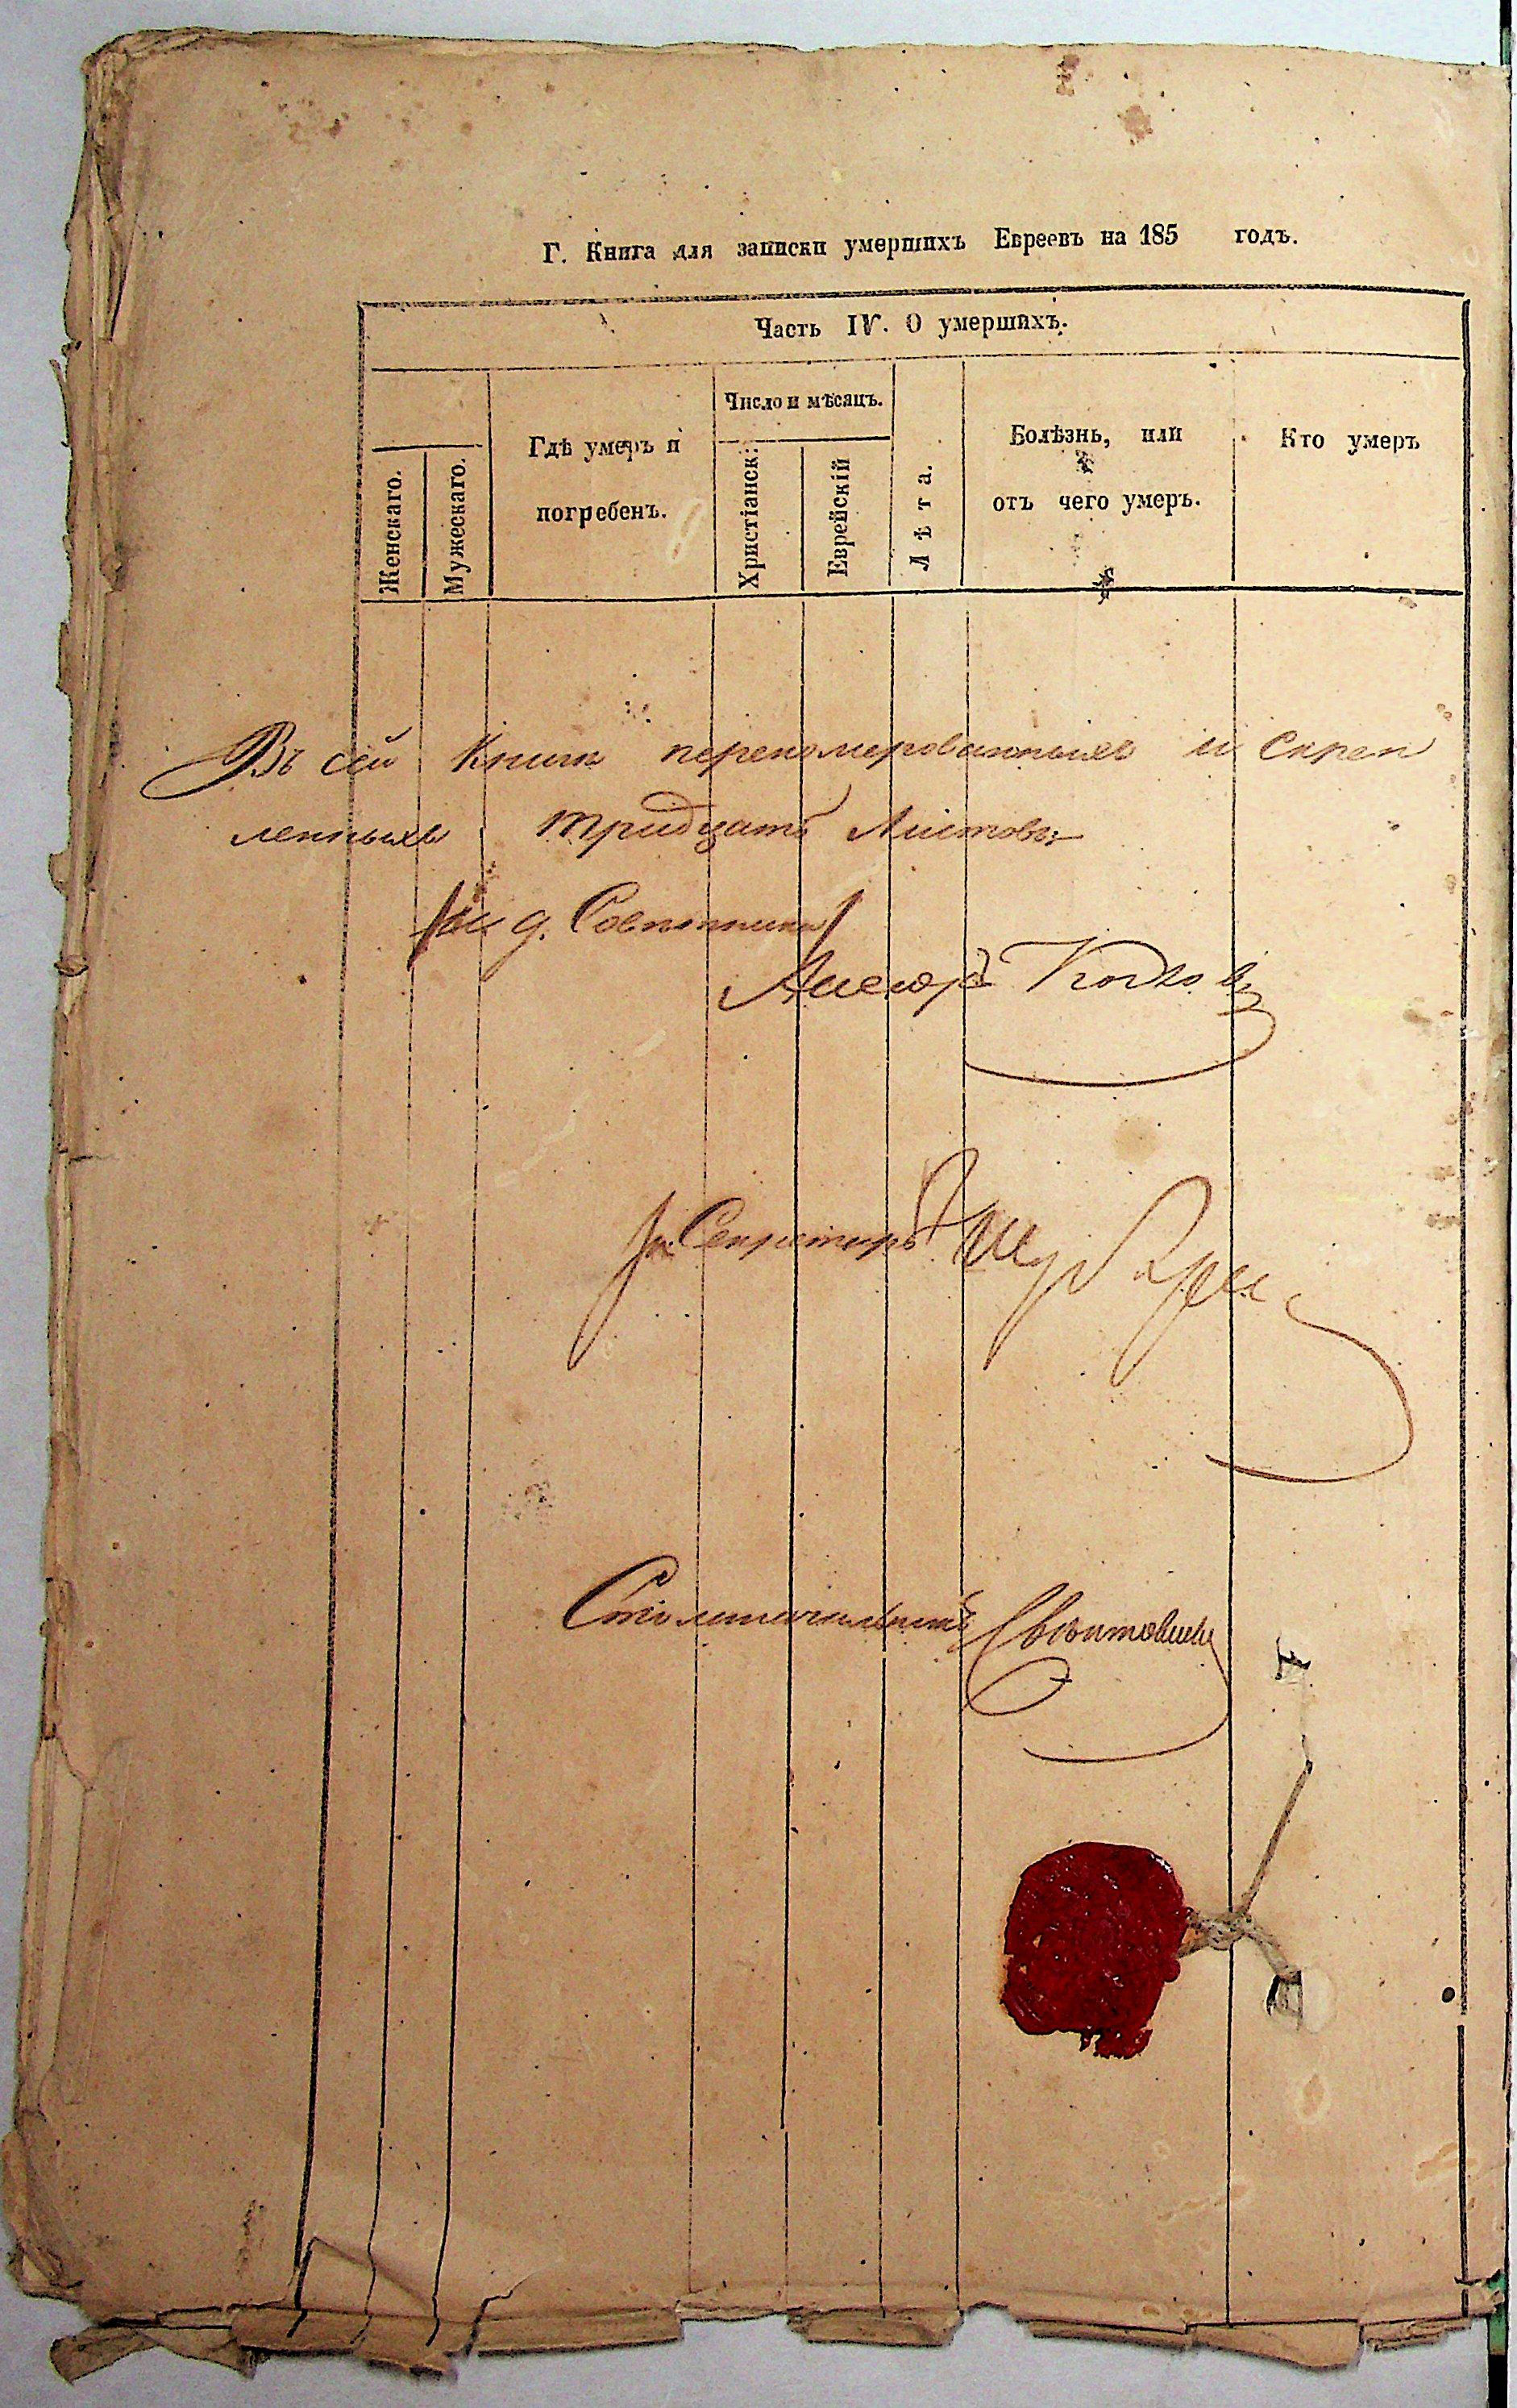 Г. Книга для записки умершихъ Евреевъ на 185 годъ.
Часть IV. О умершихъ.
Женскаго.
Мужескаго.
Гдѣ умеръ и
погребенъ.
Число и мѣсяцъ.
Христіанск:
Еврейскій
Лѣта.
Болѣзнь, или
отъ чего умеръ.
Кто умеръ
Въ сей Книги перепомерованныхъ и Скреп
ленныхъ тридцать Листовъ
И д. Советника
Асесоръ
Секретарь
Столоначальникъ